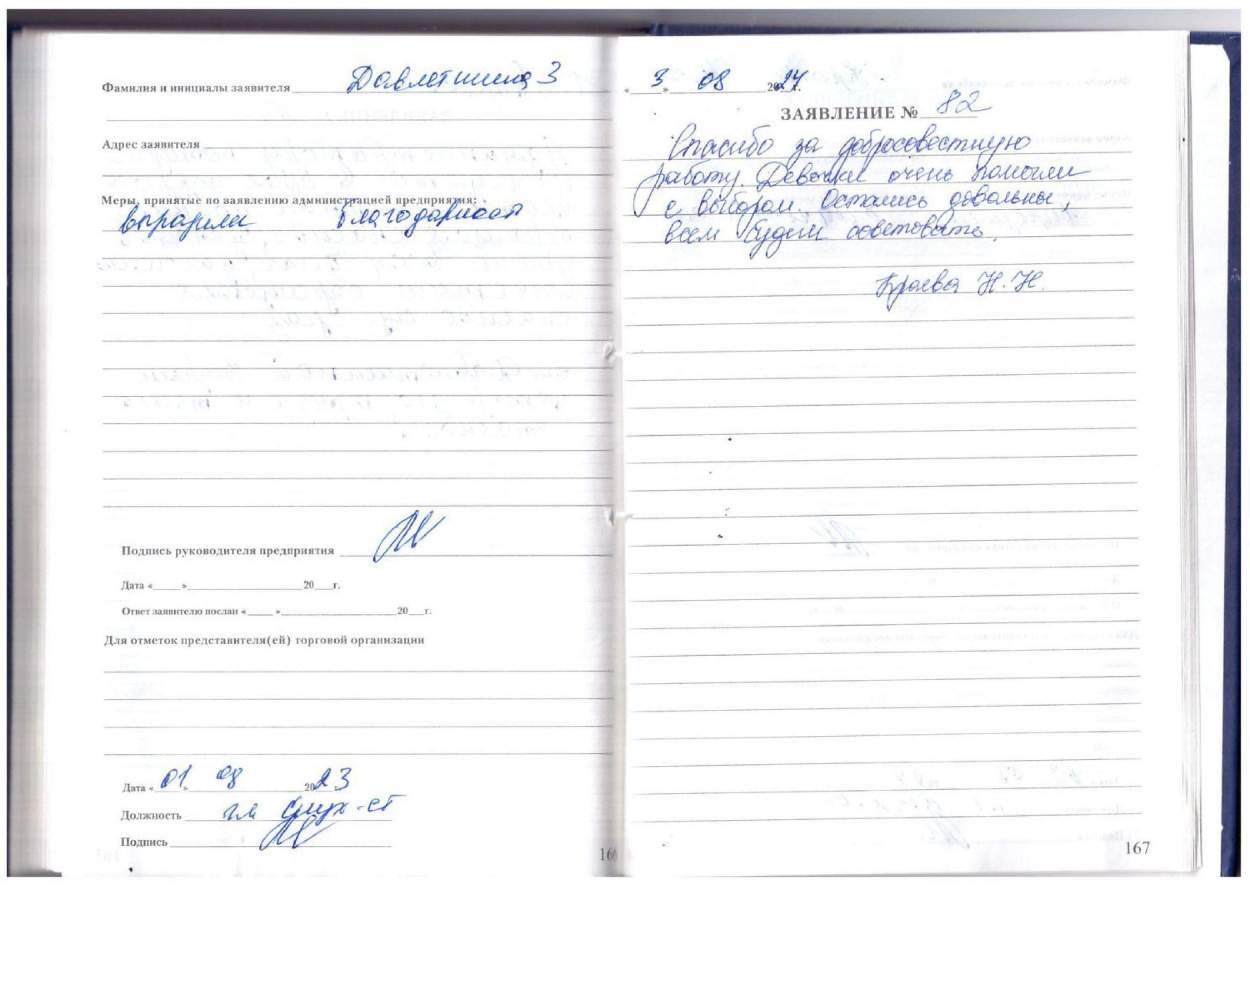 Фамилия и инициалы заявителя Давлетшина З
Адрес заявителя
Меры, принятые по заявлению администрацией предприятия:
выразили благодарность
Подпись руководителя предприятия
Дата « » 20 г.
Ответ заявителю послан « » 20 г.
Для отметок представителя(ей) торговой организации
Дата « 01 » 08 2023
Должность гл
Подпись
« 3 » 08 2024 г.
ЗАЯВЛЕНИЕ № 82
Спасибо за добросовестную
работу. Девочки очень помогли
с выбором. Остались довольны,
всем будем советовать.
Краева Н.Н.
167